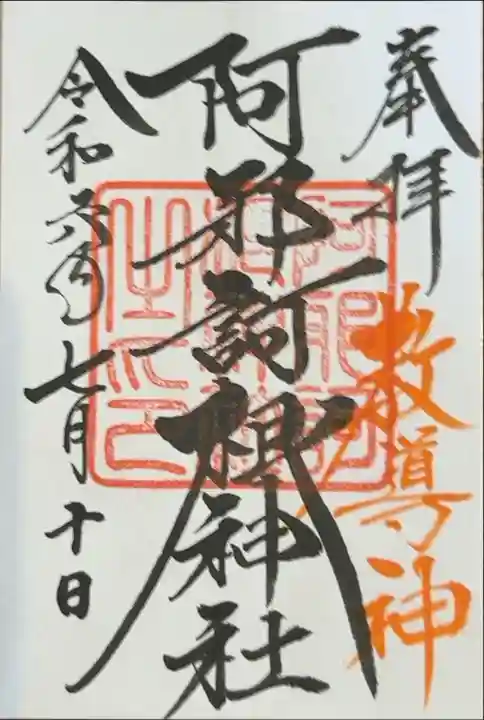 奉拝
教導神
阿邪訶根神社
令和六年七月十日